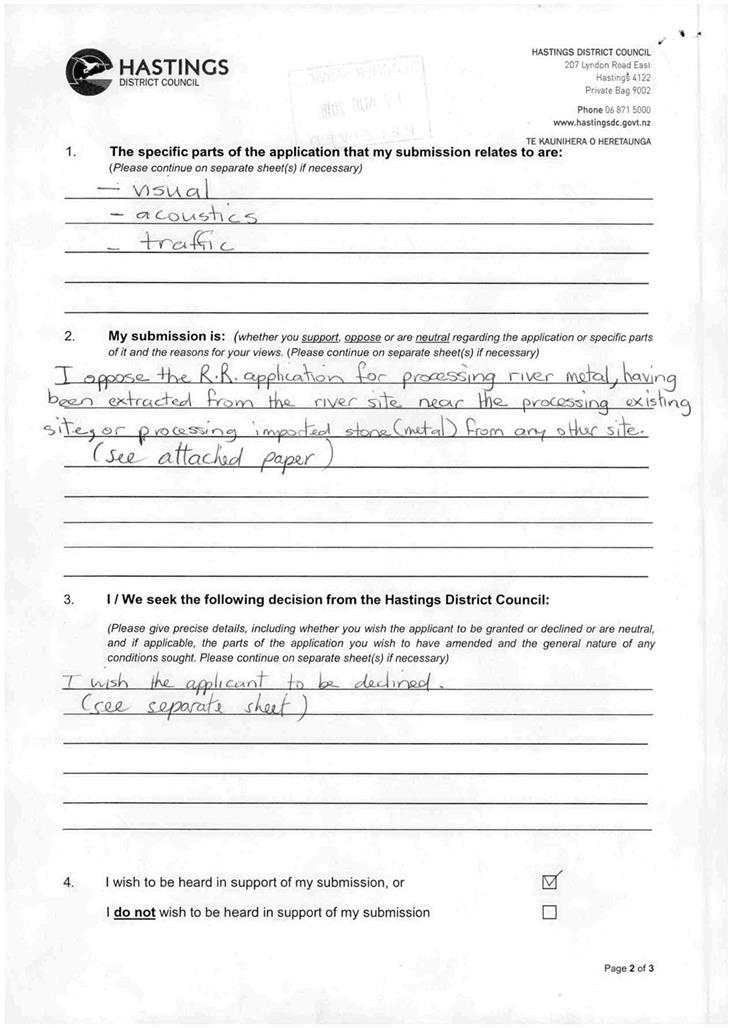 HASTINGS
DISTRICT COUNCIL
HASTINGS DISTRICT COUNCIL
207 Lyndon Road East
Hastings 4122
Private Bag 9002
Phone 06 871 5000
www.hastingsdc.govt.nz
TE KAUNIHERA O HERETAUNGA
1. The specific parts of the application that my submission relates to are:
(Please continue on separate sheet(s) if necessary)
- visual
- acoustics
- traffic
2. My submission is: (whether you support, oppose or are neutral regarding the application or specific parts
of it and the reasons for your views. (Please continue on separate sheet(s) if necessary)
I oppose the R.R. application for processing river metal, having
been extracted from the river site near the processing existing
site, or processing imported stone (metal) from any other site.
(see attached paper)
3. I / We seek the following decision from the Hastings District Council:
(Please give precise details, including whether you wish the applicant to be granted or declined or are neutral,
and if applicable, the parts of the application you wish to have amended and the general nature of any
conditions sought. Please continue on separate sheet(s) if necessary)
I wish the applicant to be declined.
(see separate sheet)
4. I wish to be heard in support of my submission, or
I do not wish to be heard in support of my submission
Page 2 of 3